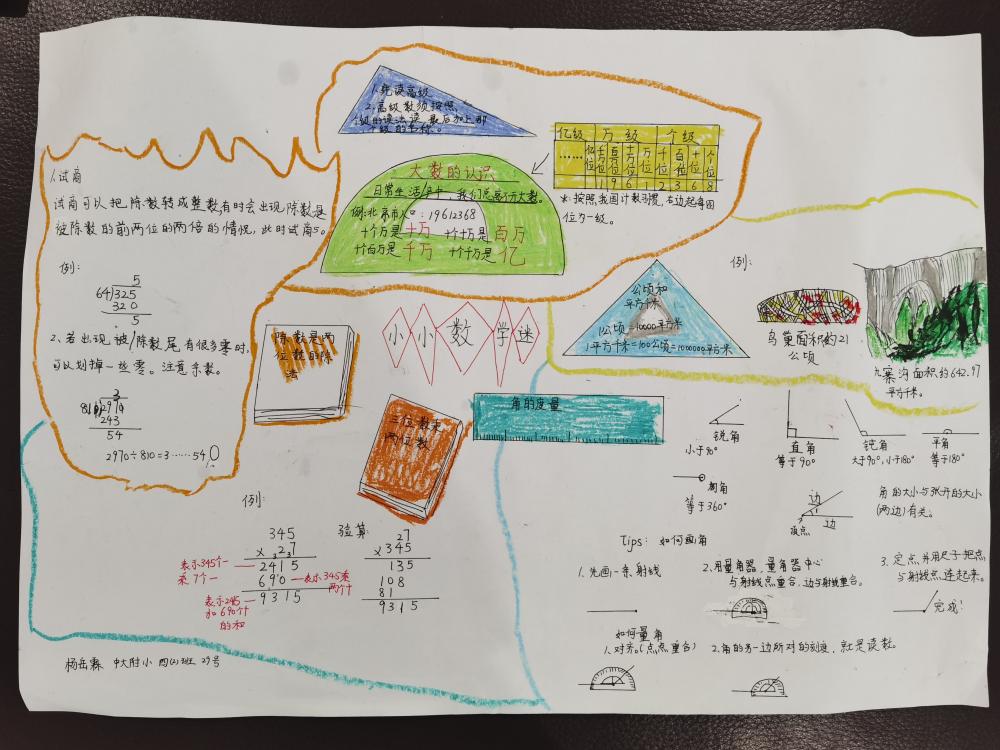 1.先读高级
2.高级数须按照
个级的读法读,最后加上那
个级的名称。
大数的认识
日常生活中,我们总离不开大数。
例:北京市人口:19612368
十个万是十万 十个十万是百万
十个百万是千万 十个千万是亿
亿级 万级 个级
…… 亿位 千万位 百万位 十万位 万位 千位 百位 十位 个位
1 9 6 1 2 3 6 8
*:按照我国计数习惯,右边起每四
位为一级。
1.试商
试商可以把除数转成整数,有时会出现除数是
被除数的前两位的两倍的情况,此时试商5。
例:
5
64)325
320
5
2、若出现被/除数尾有很多零时,
可以划掉一些零。注意余数。
3
810)2970
243
54
2970÷810=3……540
小小数学迷
除数是两
位数的除
法
三位数乘
两位数
例:
345
×27
2415
690
9315
表示345个一
乘7个一
表示345乘
两个十
和690个十
的和
验算:
27
×345
135
108
81
9315
公顷和
平方千米
1公顷=10000平方米
1平方千米=100公顷=1000000平方米
例:
鸟巢面积约21
公顷
九寨沟面积约642.97
平方千米。
角的度量
锐角
小于90°
直角
等于90°
钝角
大于90°,小于180°
平角
等于180°
周角
等于360°
边
顶点
边
角的大小与张开的大小
(两边)有关。
Tips: 如何画角
1.先画一条射线
2.用量角器,量角器中心
与射线点重合,边与射线重合。
3.定点,并用尺子把点
与射线点连起来。
完成!
如何量角
1.对齐。(点点重合)
2.角的另一边所对的刻度,就是读数。
中大附小 四(2)班 29号